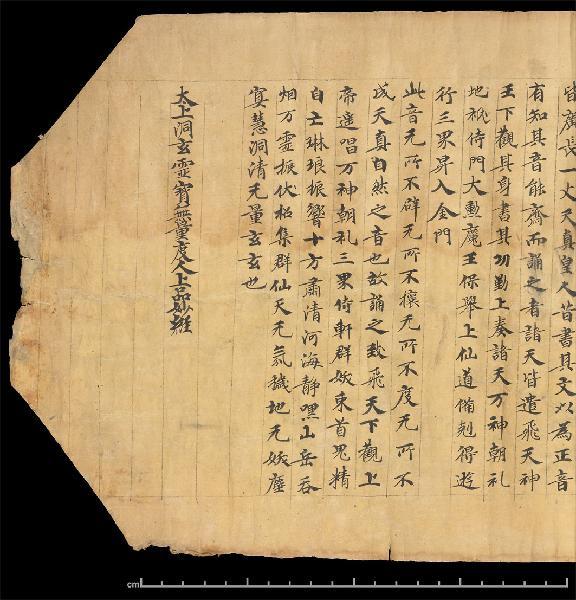 皆廣長一丈天真皇人昔書其文以為正音
有知其音能齋而誦之者諸天皆遣飛天神
王下觀其身書其功勤上奏諸天万神朝礼
地祇侍門大勳魔王保舉上仙道俻剋得遊
行三界昇入金門
此音无所不辟无所不禳无所不度无所不
成天真自然之音也故誦之致飛天下觀上
帝遥唱万神朝礼三界侍軒群妖束首鬼精
自亡琳琅振響十方肅清河海静嘿山岳吞
烟万靈振伏招集群仙天无氛穢地无妖塵
冥慧洞清无量玄玄也
太上洞玄靈寳無量度人上品妙經
cm